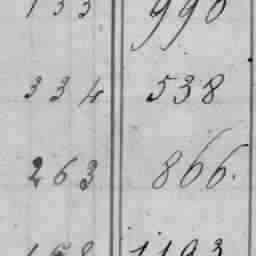 133 990
334 538
263 866.
168 1193